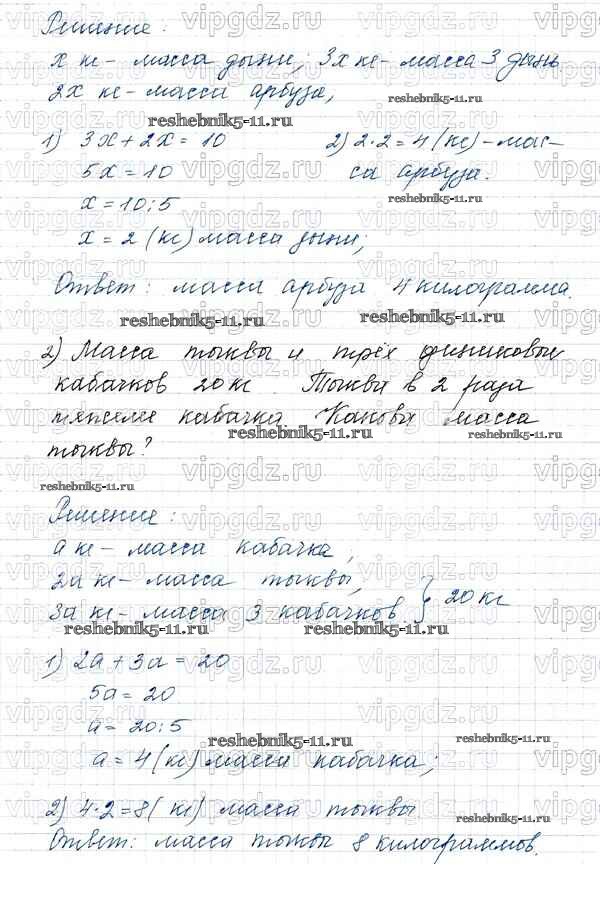 Решение:
х кг - масса дыни; 3х кг - масса 3 дынь
2х кг - масса арбуза,
reshebnik5-11.ru
reshebnik5-11.ru
1) 3х + 2х = 10
2) 2·2=4 (кг) - мас-
5х = 10
са арбуза.
reshebnik5-11.ru
х = 10:5
х = 2 (кг) масса дыни;
Ответ: масса арбуза 4 килограмма.
reshebnik5-11.ru
reshebnik5-11.ru
2) Масса тыквы и трёх одинаковых
кабачков 20 кг. Тыква в 2 раза
тяжелее кабачка. Какова масса
reshebnik5-11.ru
reshebnik5-11.ru
тыквы?
reshebnik5-11.ru
Решение:
а кг - масса кабачка,
2а кг - масса тыквы,
3а кг - масса 3 кабачков } 20 кг
reshebnik5-11.ru
reshebnik5-11.ru
1) 2а + 3а = 20
5а = 20
а = 20:5
reshebnik5-11.ru
reshebnik5-11.ru
а = 4 (кг) масса кабачка;
2) 4·2=8 (кг) масса тыквы
reshebnik5-11.ru
Ответ: масса тыквы 8 килограммов.
vipgdz.ru